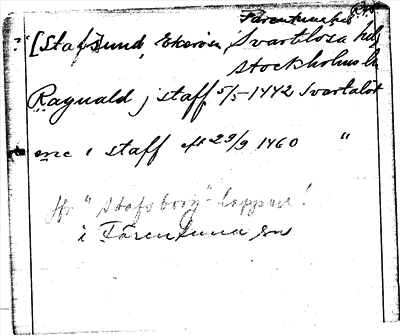 Färentuna hd
[Stafsund, Ekerön, Svartlösa hd,
Stockholms län
Ragnald j staff 5/5 1442 Svartalöt
me i staff eft 29/9 1460 "
Jfr "Stafsborg"-lappen!
i Färentuna sn